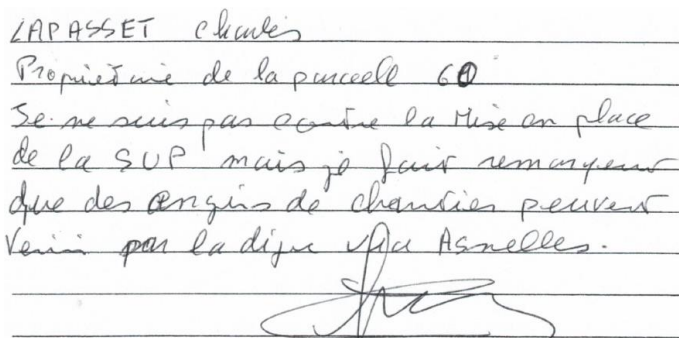 LAPASSET Charles
Propriétaire de la parcelle 60
Je ne suis pas contre la Mise en place
de la SUP mais je fais remarquer
que des engins de chantier peuvent
Venir par la digue via Asnelles.